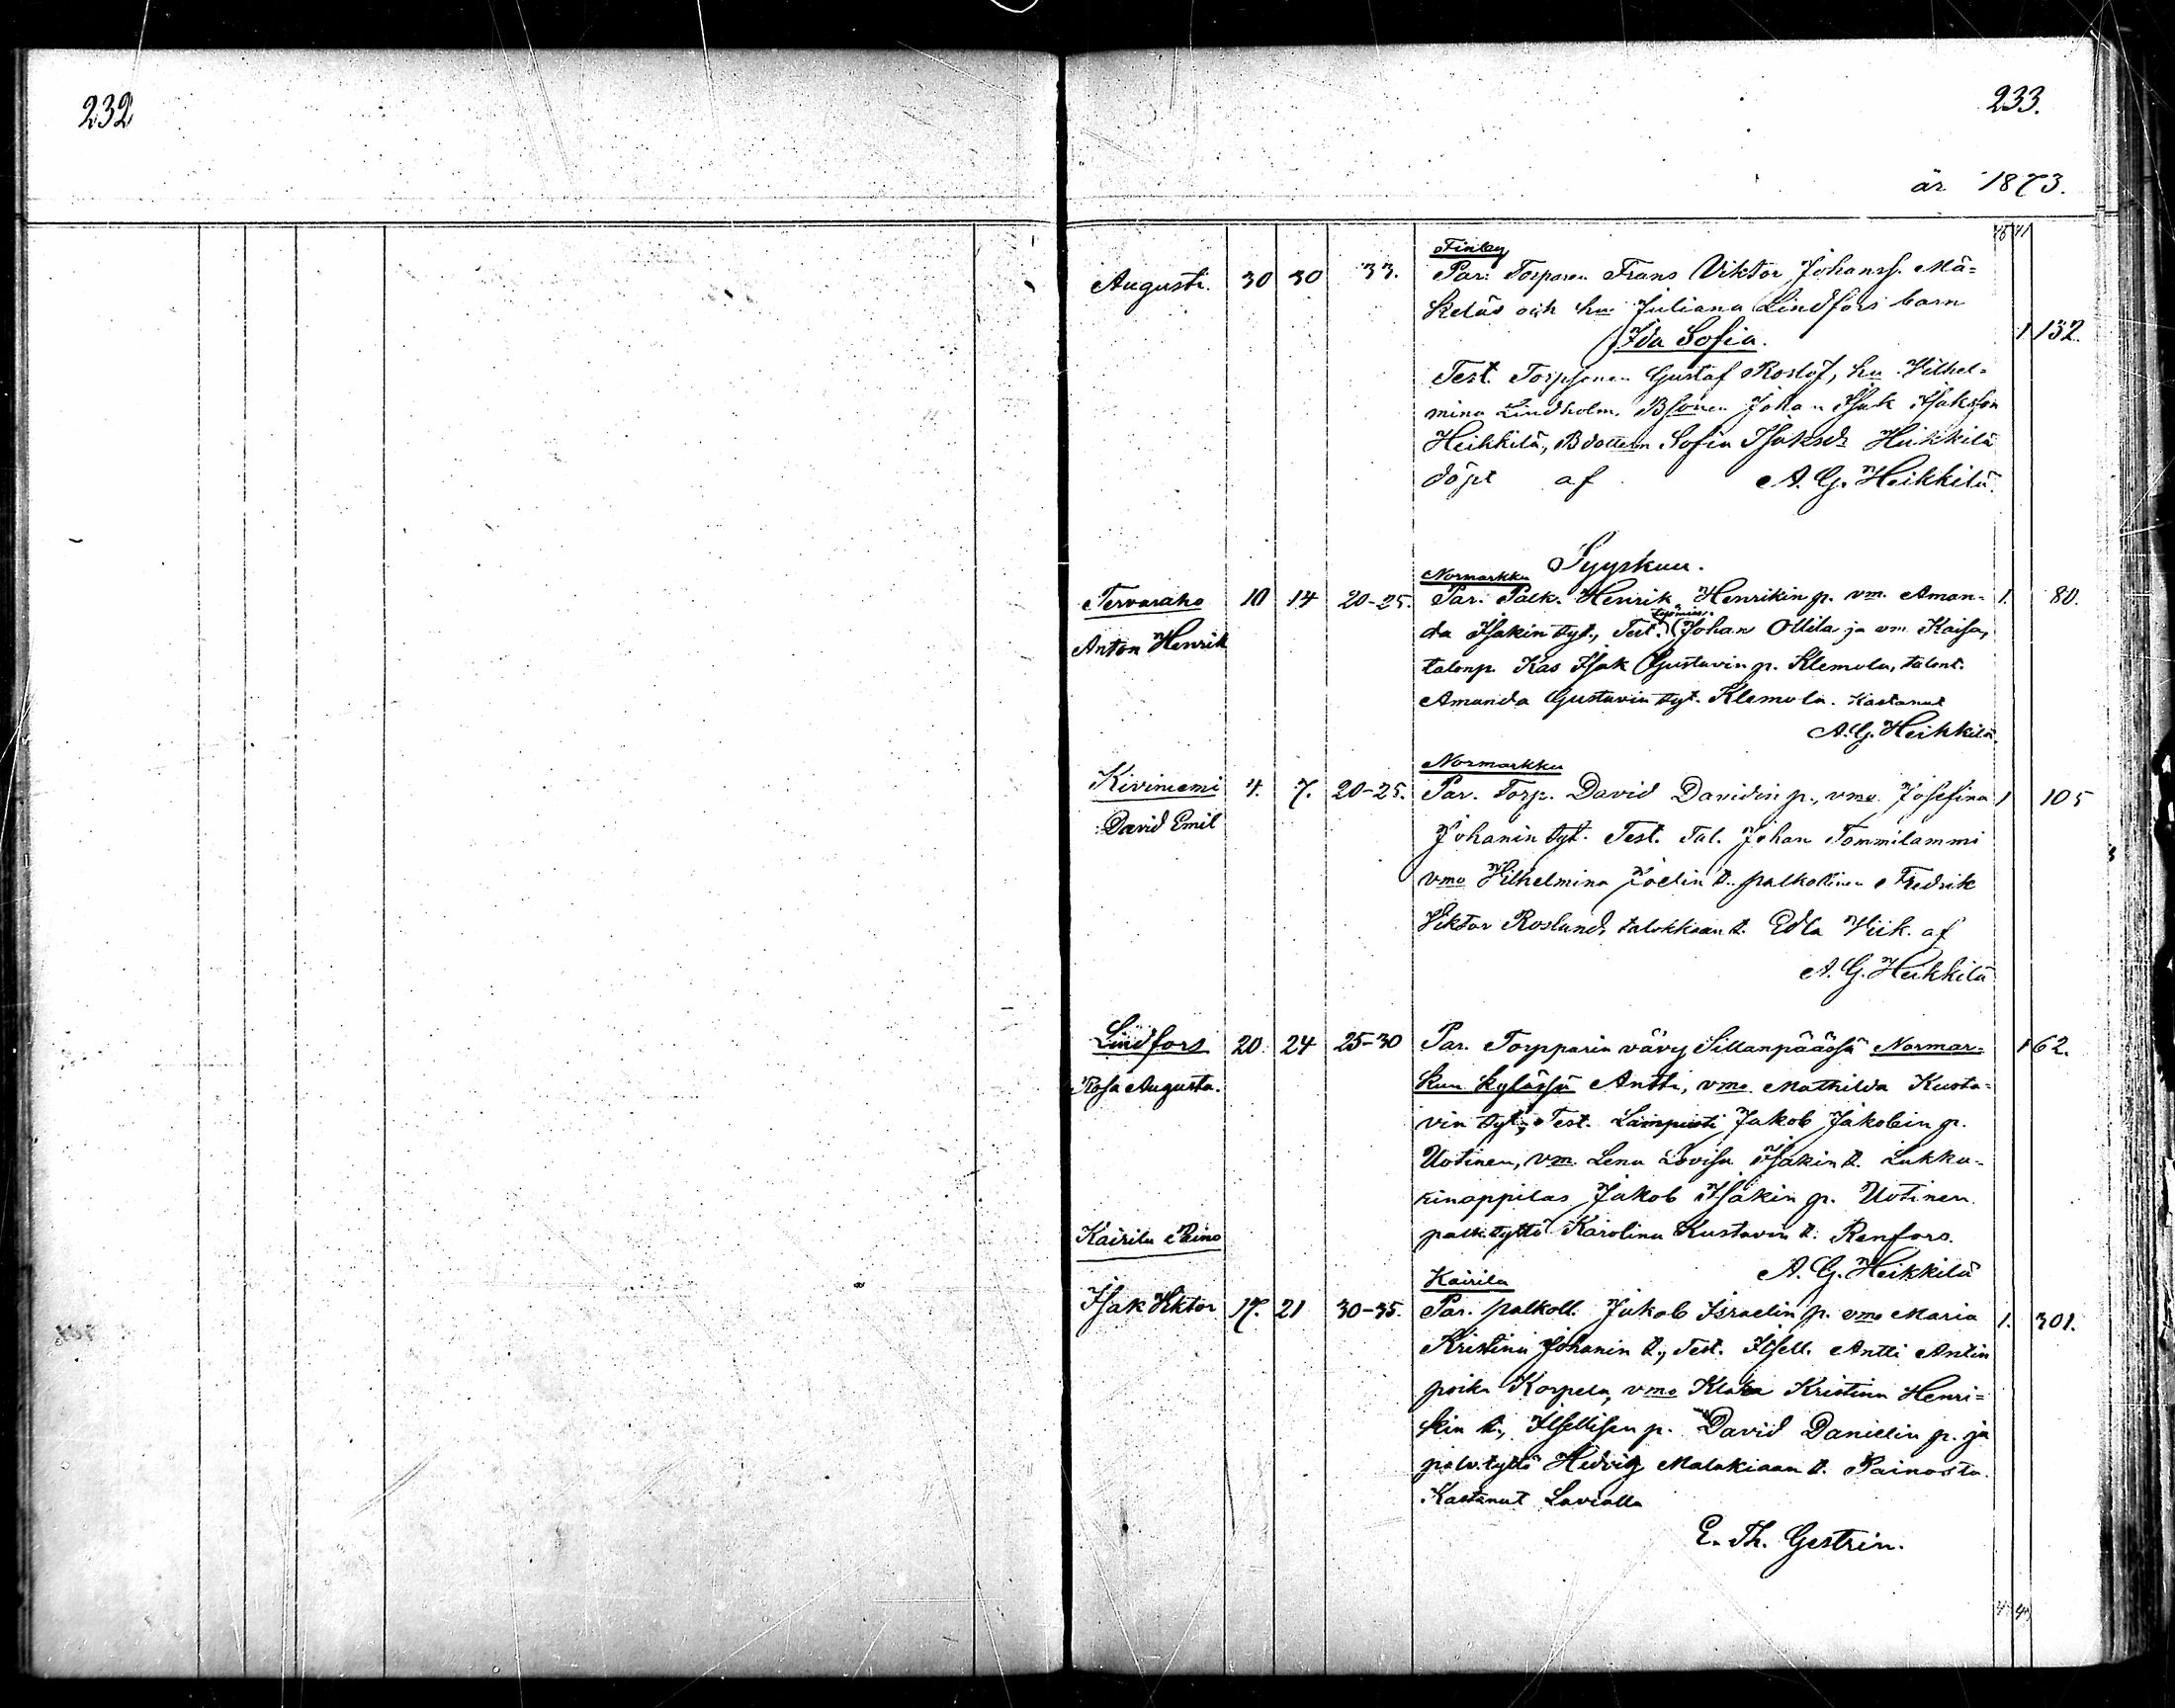 232
233.
år 1873.
48 41
Finby
Augusti. 30 30 33. Par: Torparen Frans Viktor Johanss. Mä=
keläs och hu Juliana Lindfors barn
Ida Sofia. 1 132.
Test. Torpsonen Gustaf Roslöf, hu Vilhel=
mina Lindholm, Bsonen Johan Isak Isaksson
Heikkilä, Bdottern Sofia Isaksdr Heikkilä
döpt af A. G. Heikkilä.
Syyskuu.
Normarkku
Tervaraho 10 14 20-25. Par. Palk. Henrik Henrikin p. vm. Aman- 1. 80.
työmies
Anton Henrik da Isakin tyt., Test. Johan Ollila ja vm. Kaisa,
talonp. Kas Isak Gustavin p. Klemola, talont.
Amanda Gustavin tyt. Klemola. Kastanut
A. G. Heikkilä.
Normarkku
Kiviniemi 4. 7. 20-25. Par. Torp. David Davidin p., vmo Josefina 1 105
David Emil Johanin tyt. Test. Tal. Johan Tommilammi
vmo Vilhelmina Joelin t. palkollinen Fredrik
Viktor Roslund, talokkaan t. Edla Viik. af
A. G. Heikkilä
Lindfors 20. 24 25-30 Par. Torpparin vävy Sillanpäässä Normar= 1 62.
Rosa Augusta. kun kylässä Antti, vmo. Mathilda Kusta=
vin tyt., Test. Lampuoti Jakob Jakobin p.
Uotinen, vm. Lena Lovisa Isakin t. Lukku-
rinoppilas Jakob Isakin p. Uotinen
palk.tyttö Karolina Kustavin t. Renfors.
Kairila Paino
A. G. Heikkilä
Kairila
Isak Viktor 17. 21 30-35. Par. palkoll. Jakob Israelin p. vmo Maria 1. 301.
Kristina Johanin t., Test. Itsell. Antti Antin
poika Korpela, vmo Klara Kristina Henri=
kin t., Itsellisen p. David Danielin p. ja
palv.tyttö Hedvig Malakiaan t. Painosta.
Kastanut Lavialla
E. Th. Gestrin.